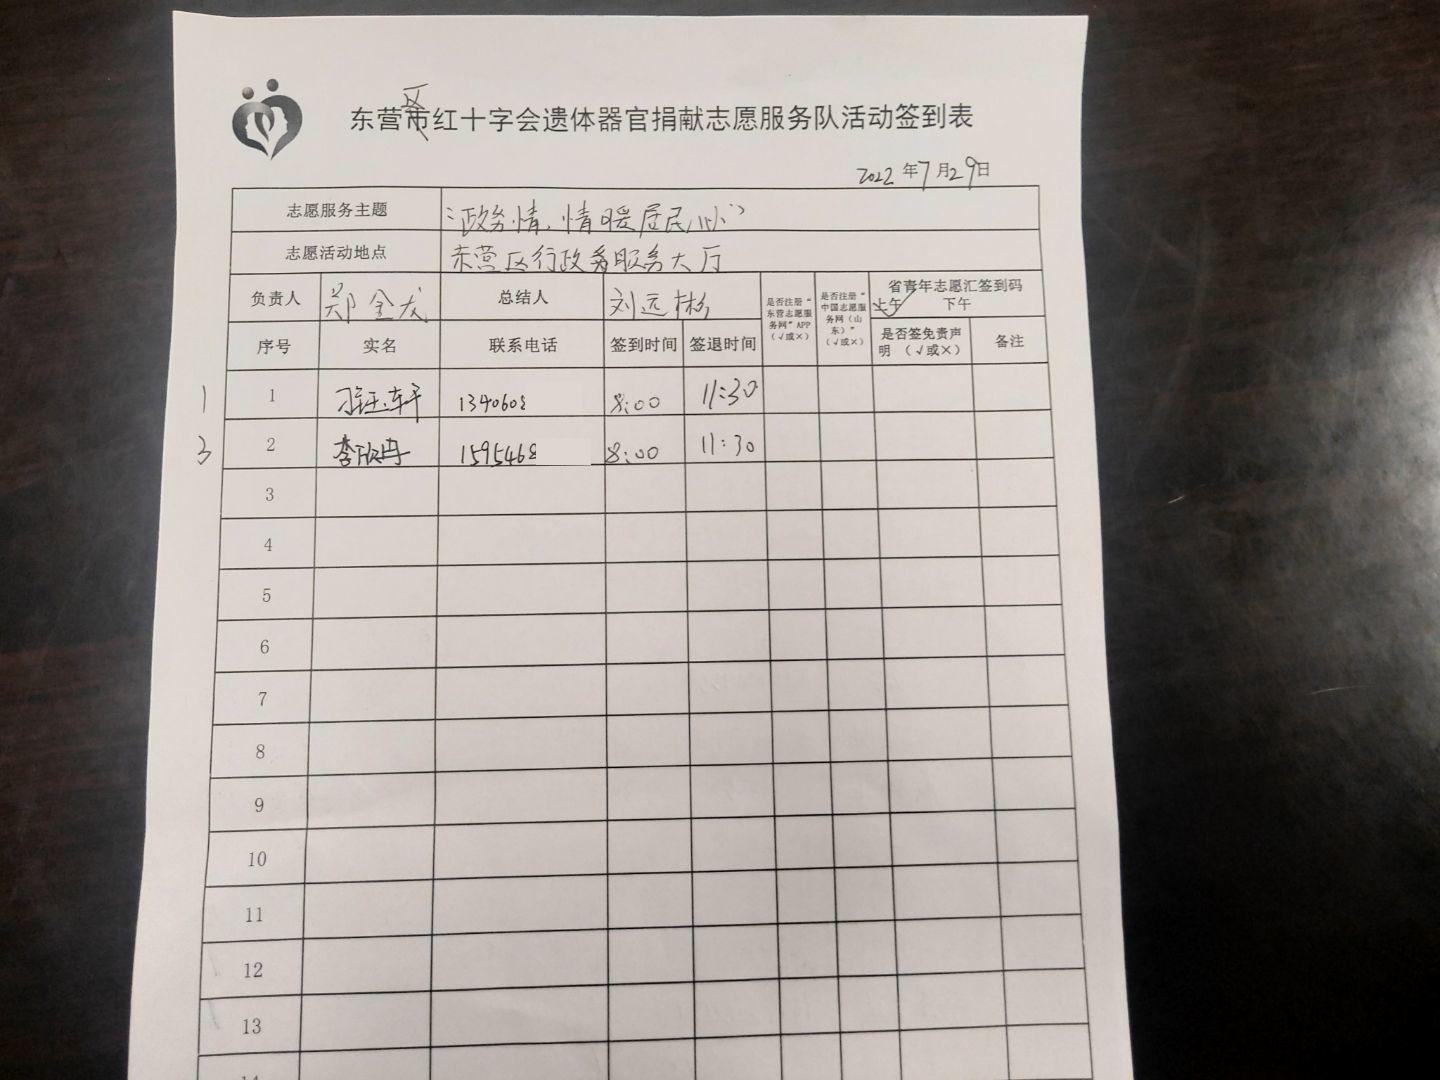 东营区红十字会遗体器官捐献志愿服务队活动签到表
2022年7月29日
志愿服务主题 “政务情,情暖居民心”
志愿活动地点 东营区行政务服务大厅
负责人 郑金龙 总结人 刘远彬 是否注册“东营志愿服务网”APP（√或×） 是否注册“中国志愿服务网（山东）”（√或×） 省青年志愿汇签到码
上午✓ 下午
序号 实名 联系电话 签到时间 签退时间 是否签免责声明 （√或×） 备注
1 1 1340608 8:00 11:30
3 2 李欣冉 1595468 8:00 11:30
3
4
5
6
7
8
9
10
11
12
13
14